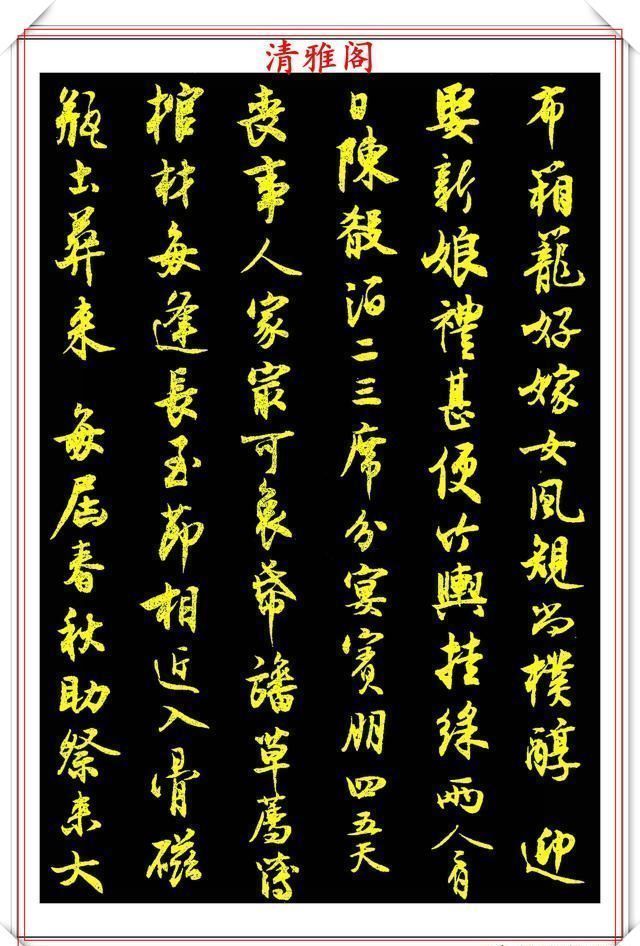 清雅阁
布箱籠好嫁女風規尚樸醇 迎
娶新娘禮甚便竹輿挂綵兩人肩
日陳殽泊二三席分宴賓朋四五天
喪事人家最可哀幕旛草薦
棺材每逢長至節相近入骨磁
瓶出葬來 每屆春秋助祭來大